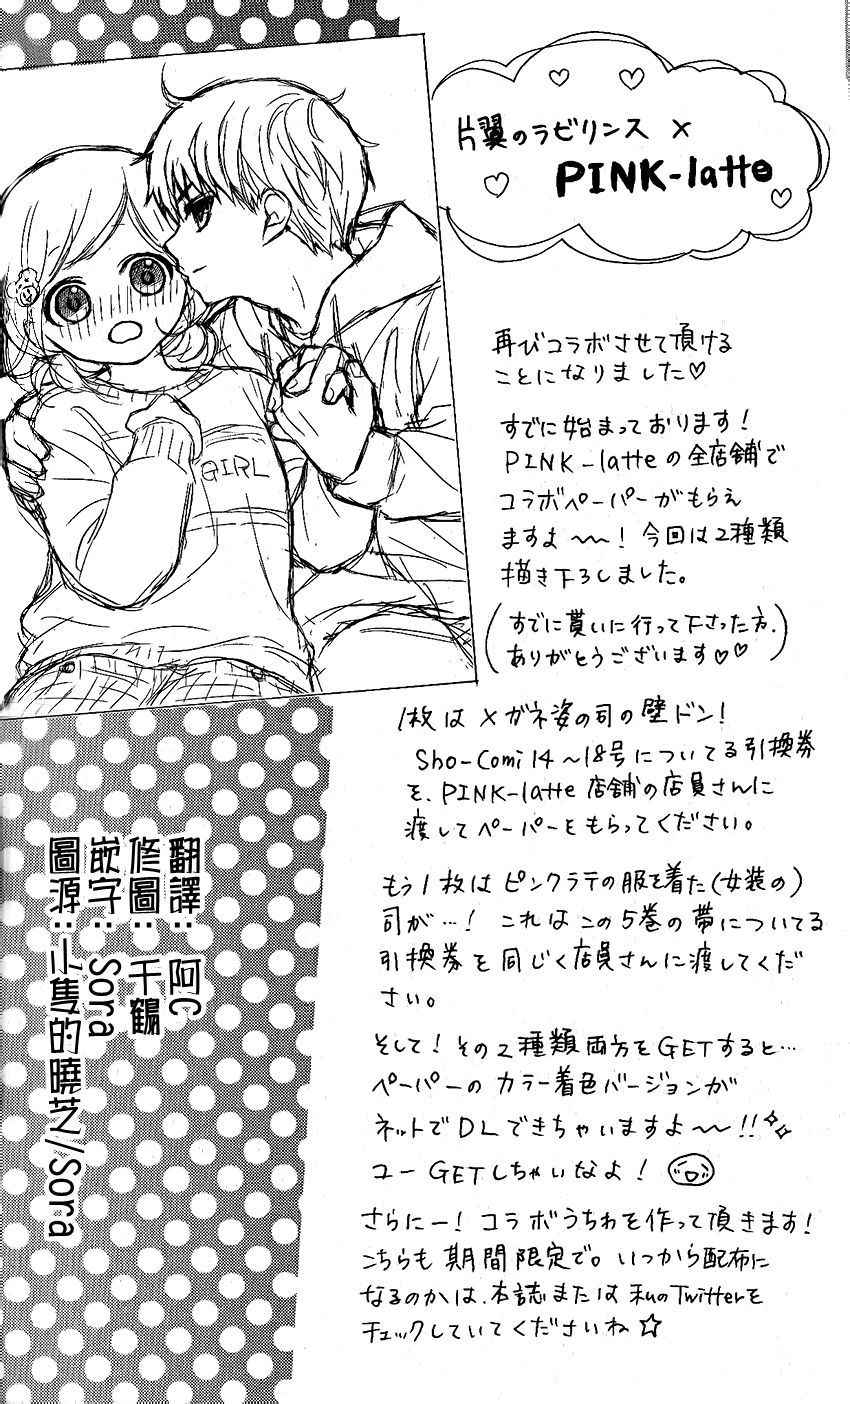 片翼のラビリンス ×
PINK-latte
再びコラボさせて頂ける
ことになりました♡
すでに始まっております！
PINK-latteの全店舗で
コラボペーパーがもらえ
ますよ〜〜！今回は2種類
描き下ろしました。
(すでに貰いに行って下さった方、
ありがとうございます♡♡)
1枚はメガネ姿の司の壁ドン！
Sho-Comi 14〜18号についてる引換券
を、PINK-latte店舗の店員さんに
渡してペーパーをもらってください。
もう1枚はピンクラテの服を着た(女装の)
司が…！これはこの5巻の帯についてる
引換券を同じく店員さんに渡してくだ
さい。
そして！その2種類両方をGETすると…
ペーパーのカラー着色バージョンが
ネットでDLできちゃいますよ〜〜!!
ユーGETしちゃいなよ！
さらにー！コラボうちわを作って頂きます！
こちらも期間限定で。いつから配布に
なるのかは、本誌または私のTwitterを
チェックしていてくださいね☆
GIRL
翻譯：阿C
修圖：千鶴
嵌字：Sora
圖源：小隻的曉芝//Sora